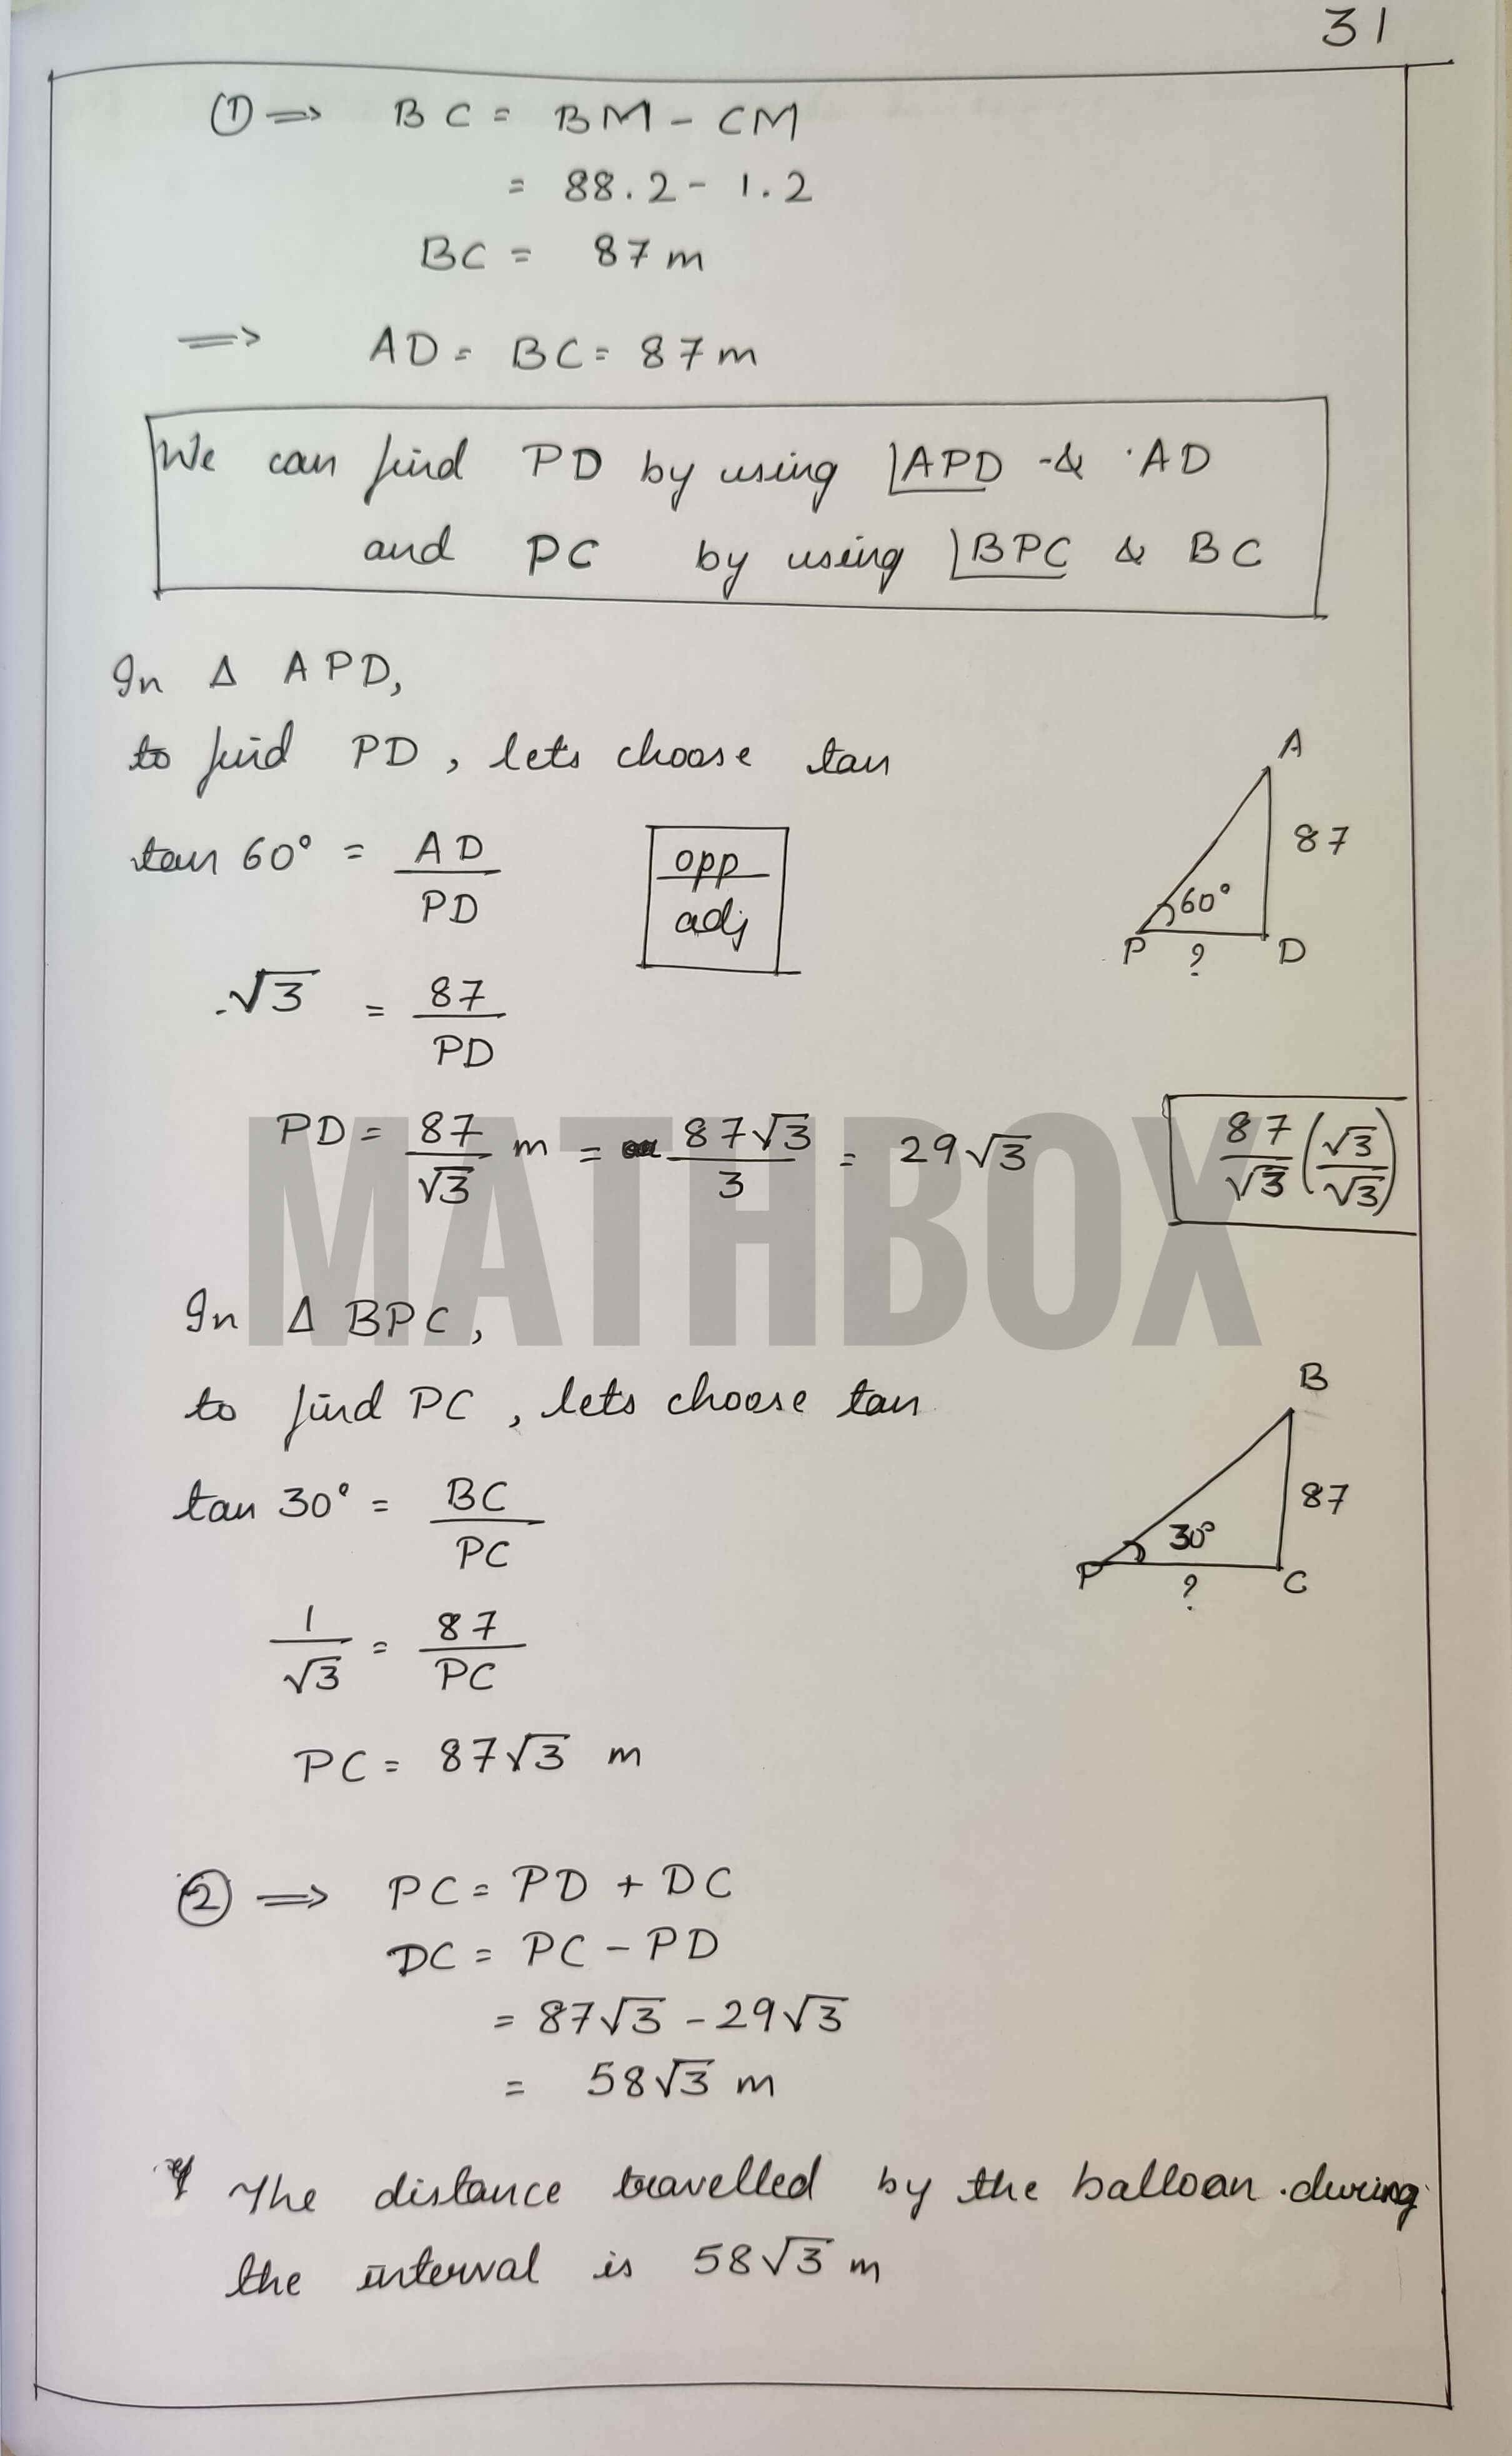 31
① ⇒ BC = BM - CM
= 88.2 - 1.2
BC = 87 m
⇒ AD = BC = 87 m
We can find PD by using ∠APD & AD
and PC by using ∠BPC & BC
In Δ APD,
to find PD, lets choose tan
tan 60° = AD/PD
opp/adj
A
87
60°
P ? D
√3 = 87/PD
PD = 87/√3 m = 87√3/3 = 29√3
87/√3 (√3/√3)
MATHBOX
In Δ BPC,
to find PC, lets choose tan
tan 30° = BC/PC
B
87
30°
P ? C
1/√3 = 87/PC
PC = 87√3 m
② ⇒ PC = PD + DC
DC = PC - PD
= 87√3 - 29√3
= 58√3 m
The distance travelled by the balloan during
the interval is 58√3 m